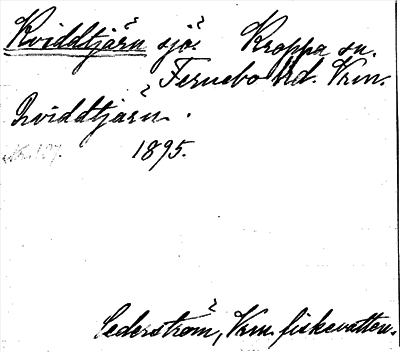 Kviddtjärn sjö. Kroppa sn.
Fernebo hd. Vrm.
Qviddtjärn.
1895.
Cederström, Vrm. fiskevatten.